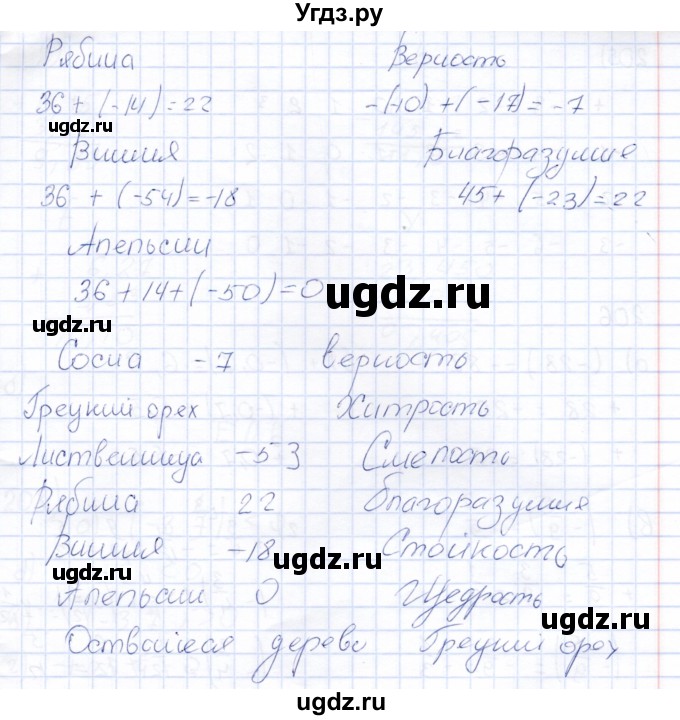 Угдз.ру
Рябина Верность
36 + (-14) = 22 -(-10) + (-17) = -7
ugdz.ru ugdz.ru
Вишня Благоразумие
36 + (-54) = -18 45 + (-23) = 22
ugdz.ru
Апельсин
36 + 14 + (-50) = 0
ugdz.ru
ugdz.ru
Сосна -7 верность
Грецкий орех Хитрость
ugdz.ru
Лиственница -53 Смелость
Рябина 22 благоразумия
ugdz.ru
Вишня -18 Стойкость
ugdz.ru ugdz.ru
Апельсин 0 Щедрость
ugdz.ru
дерево Грецкий орех
ugdz.ru